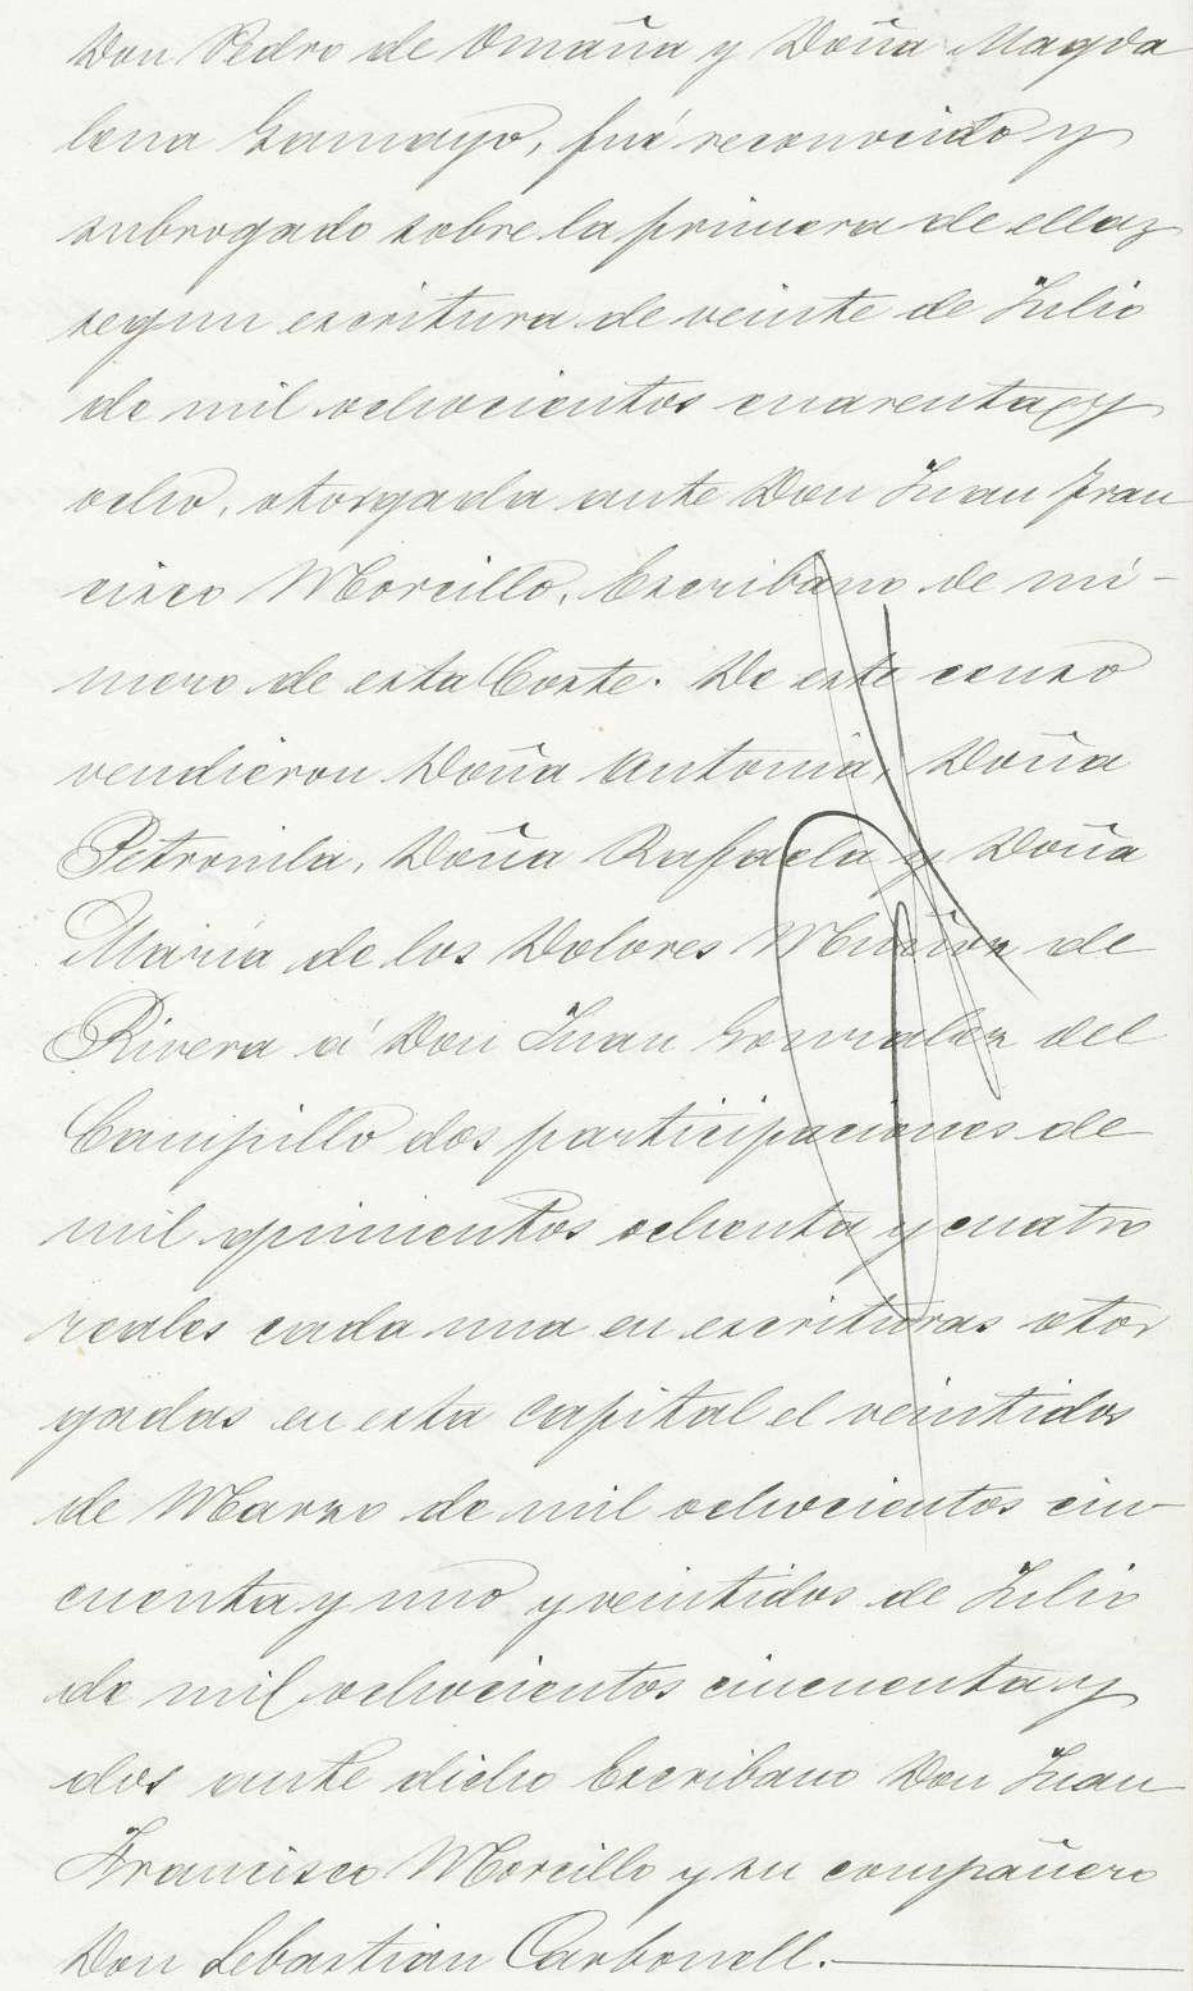 Don Pedro de Omaña y Doña Magda
lena Gamayo, fué reconocido y
subrogado sobre la primera de ellas
segun escritura de veinte de Julio
de mil ochocientos cuarenta y
ocho, otorgada ante Don Juan Fran
cisco Morcillo, Escribano de nú-
mero de esta Corte. De este censo
vendieron Doña Antonia, Doña
Petronila, Doña Rafaela y Doña
Maria de los Dolores Muñoz de
Rivera á Don Juan Gonzalez del
Campillo dos participaciones de
mil quinientos ochenta y cuatro
reales cada una en escrituras otor
gadas en esta capital el veintidos
de Marzo de mil ochocientos cin-
cuenta y uno y veintidos de Julio
de mil ochocientos cincuenta y
dos ante dicho Escribano Don Juan
Francisco Morcillo y su compañero
Don Sebastian Carbonell.